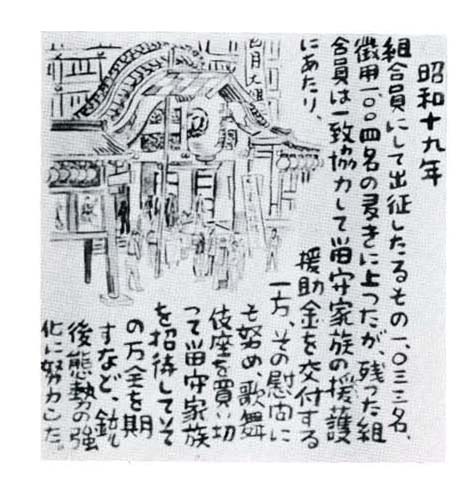 昭和十九年
組合員にして出征したるもの一、〇三三名、
徴用一、〇〇四名の多きに上つたが、残つた組
合員は一致協力して畄守家族の援護
にあたり、
援助金を交付する
一方、その慰問に
も努め、歌舞
伎座を買い切
つて畄守家族
を招待してそ
の万全を期
すなど、銃
後態勢の強
化に努力した。